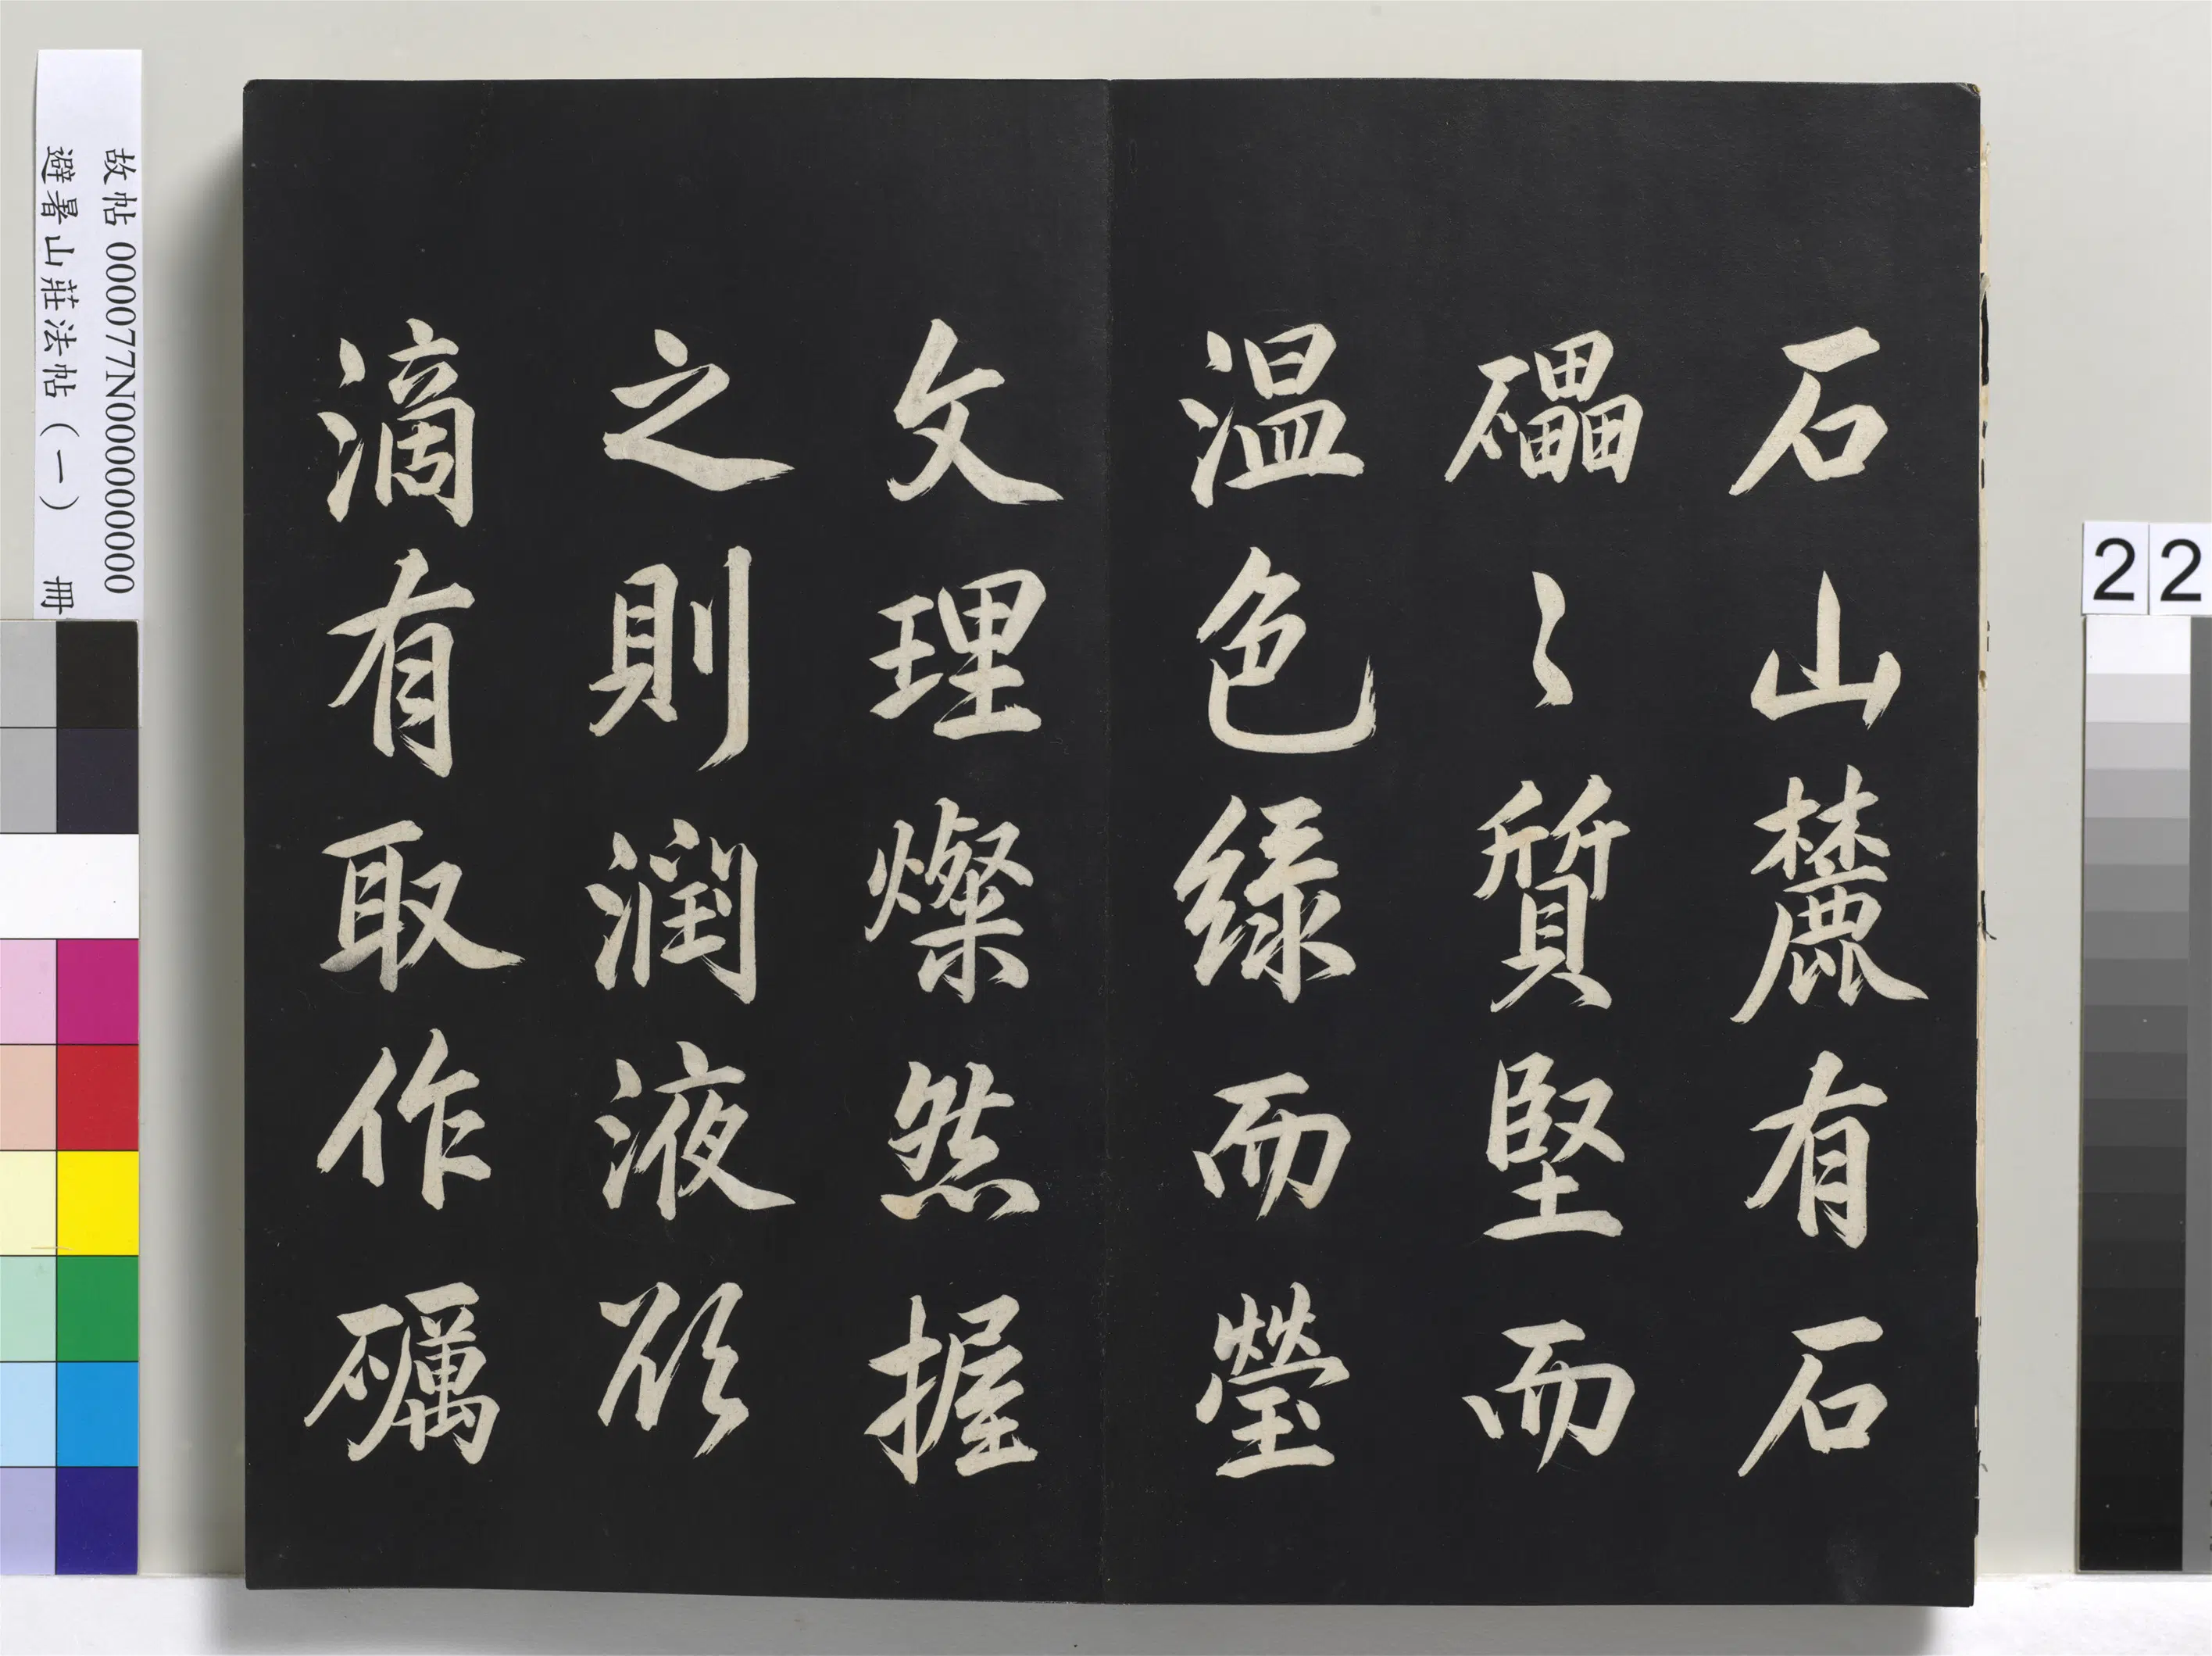 石山麓有石
礧〻質堅而
温色緑而瑩
文理燦然握
之則潤液欲
滴有取作礪
故帖 000077N000000000
避暑山莊法帖(一) 冊
22